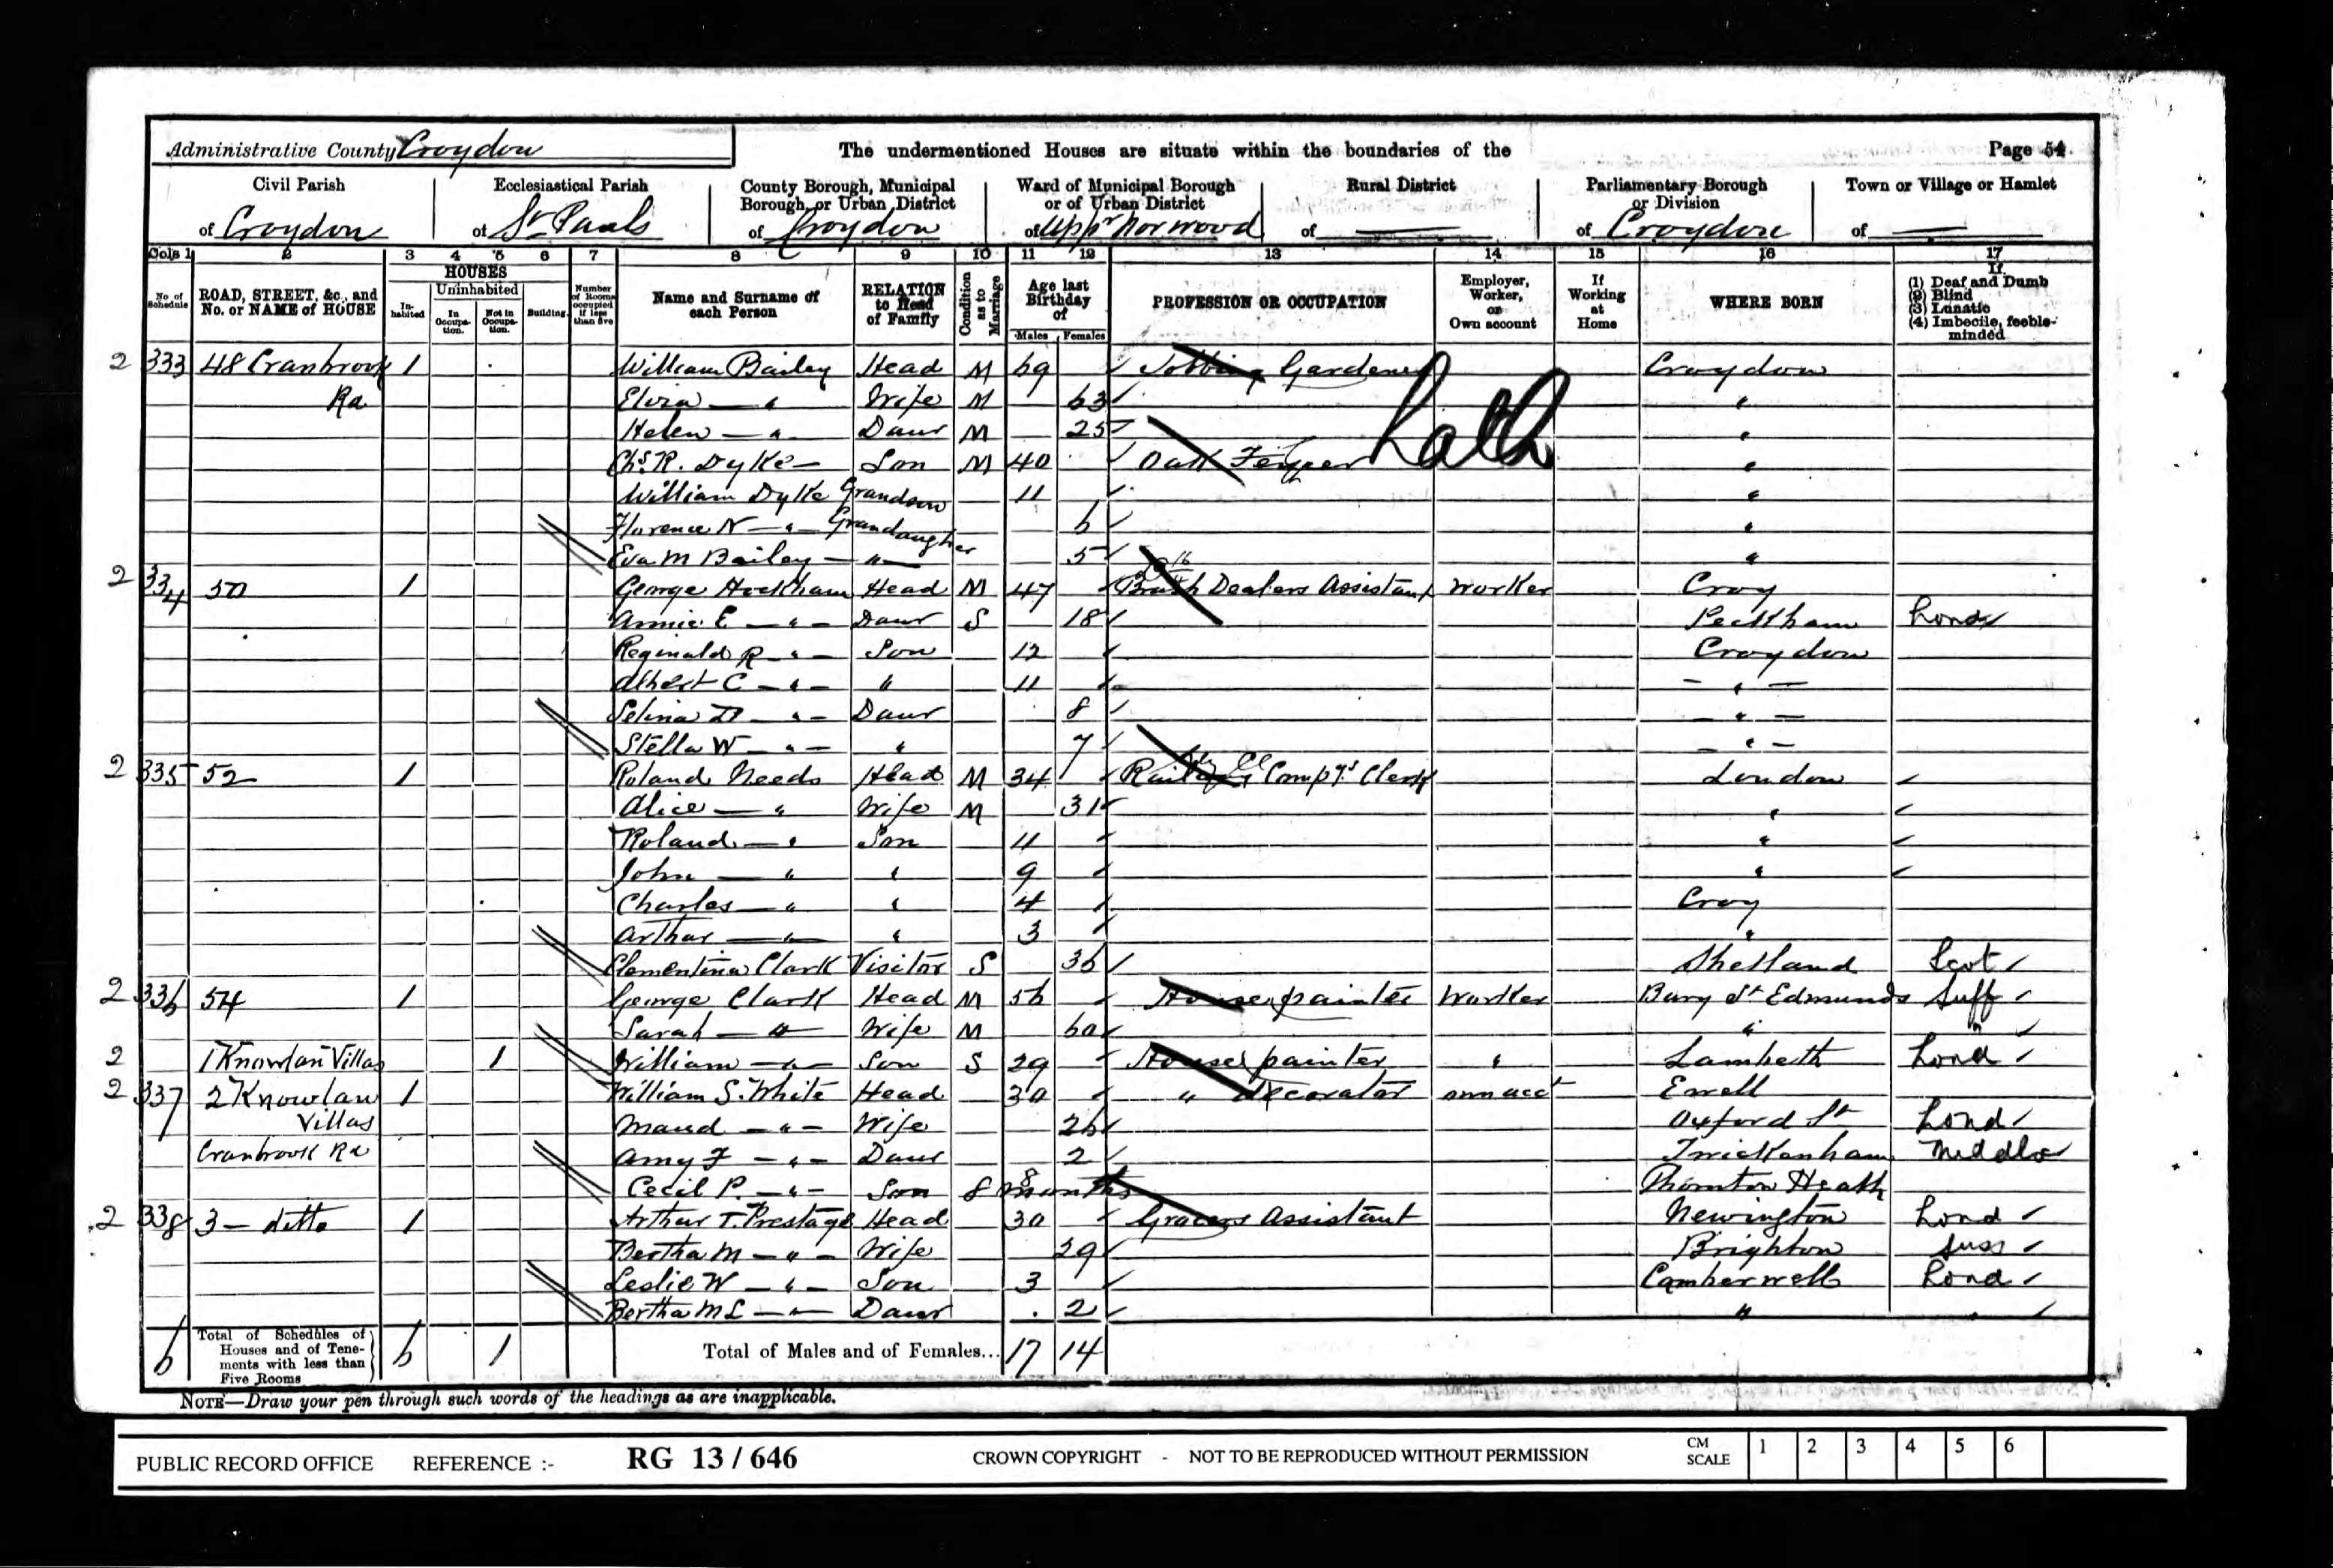 Administrative County Croydon
The undermentioned Houses are situate within the boundaries of the
Page 54
Civil Parish of Croydon
Ecclesiastical Parish of St Pauls
County Borough, Municipal Borough, or Urban District of Croydon
Ward of Municipal Borough or of Urban District of Uppr Norwood
Rural District of —
Parliamentary Borough or Division of Croydon
Town or Village or Hamlet of —
Cols 1 2 3 4 5 6 7 8 9 10 11 12 13 14 15 16 17
No of Schedule
ROAD, STREET, &c., and No. or NAME of HOUSE
HOUSES
Inhabited
Uninhabited
In Occupation.
Not in Occupation.
Building.
Number of Rooms occupied if less than five
Name and Surname of each Person
RELATION to Head of Family
Condition as to Marriage
Age last Birthday of
Males Females
PROFESSION OR OCCUPATION
Employer, Worker, or Own account
If Working at Home
WHERE BORN
If
(1) Deaf and Dumb
(2) Blind
(3) Lunatic
(4) Imbecile, feeble-minded
2 333 48 Cranbrook 1 William Bailey Head M 69 Jobbing Gardener Croydon
Rd Eliza — " Wife M 63 "
Helen — " Daur M 25 "
Chs. R. Dyke — Son M 40 Oak Lath "
William Dyke Grandson 11 "
Florence N — " — Grandaughter 6 "
Eva M Bailey — " — 5 "
2 334 50 1 George Hockham Head M 47 Brush Dealers Assistant Worker Croy
Annie E — " — Daur S 18 Peckham Lond
Reginald R — " — Son 12 Croydon
Albert C — " — " 11 — " —
Selina D — " — Daur 8 — " —
Stella W — " — " 7 — " —
2 335 52 1 Roland Needs Head M 34 Railway Compy's Clerk London
Alice — " Wife M 31 "
Roland — " Son 11 "
John — " " 9 "
Charles — " " 4 Croy
Arthur — " " 3 "
Clementina Clark Visitor S 36 Shetland Scot
2 336 54 1 George Clark Head M 56 House painter Worker Bury St Edmunds Suff
Sarah — " Wife M 60 " "
2 1 Knowlan Villas 1 William — " — Son S 29 House painter " Lambeth Lond
2 337 2 Knowlan 1 William S. White Head 30 " Decorator own acct Ewell
Villas Maud — " — Wife 26 Oxford St Lond
Cranbrook Rd Amy F — " — Daur 2 Twickenham Middlx
Cecil P. — " — Son 8 months Thornton Heath
2 338 3 — ditto 1 Arthur T. Prestage Head 30 Grocers Assistant Newington Lond
Bertha M — " — Wife 29 Brighton Suss
Leslie W — " — Son 3 Camberwell Lond
Bertha M L — " — Daur 2 " "
6 Total of Schedules of Houses and of Tenements with less than Five Rooms 6 1 Total of Males and of Females... 17 14
NOTE—Draw your pen through such words of the headings as are inapplicable.
PUBLIC RECORD OFFICE REFERENCE :- RG 13 / 646 CROWN COPYRIGHT - NOT TO BE REPRODUCED WITHOUT PERMISSION CM SCALE 1 2 3 4 5 6